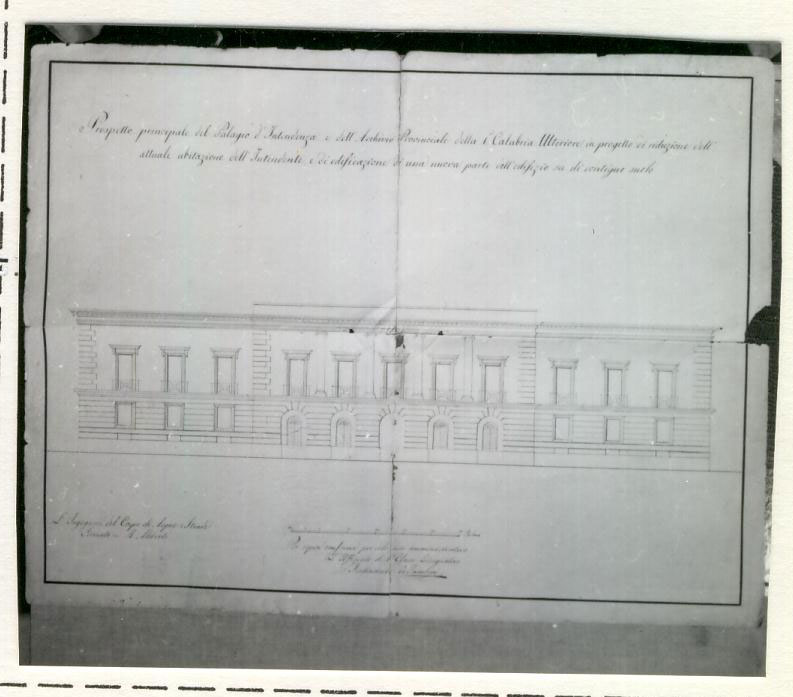 Prospetto principale del Palagio d'Intendenza e dell'Archivio Provinciale della 1ª Calabria Ulteriore in progetto di riduzione dell'
attuale abitazione dell'Intendente e di edificazione di una nuova parte all'edifizio su di contiguo suolo
L'Ingegnere del Corpo di Acque e Strade
Firmato =
Per copia conforme per uso
L'Uffiziale di 1ª Classe